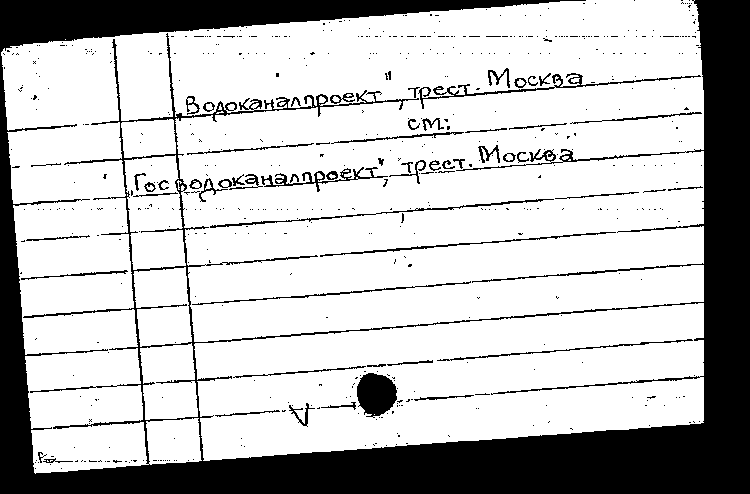 „Водоканалпроект", трест. Москва
см:
„Госводоканалпроект", трест. Москва
V